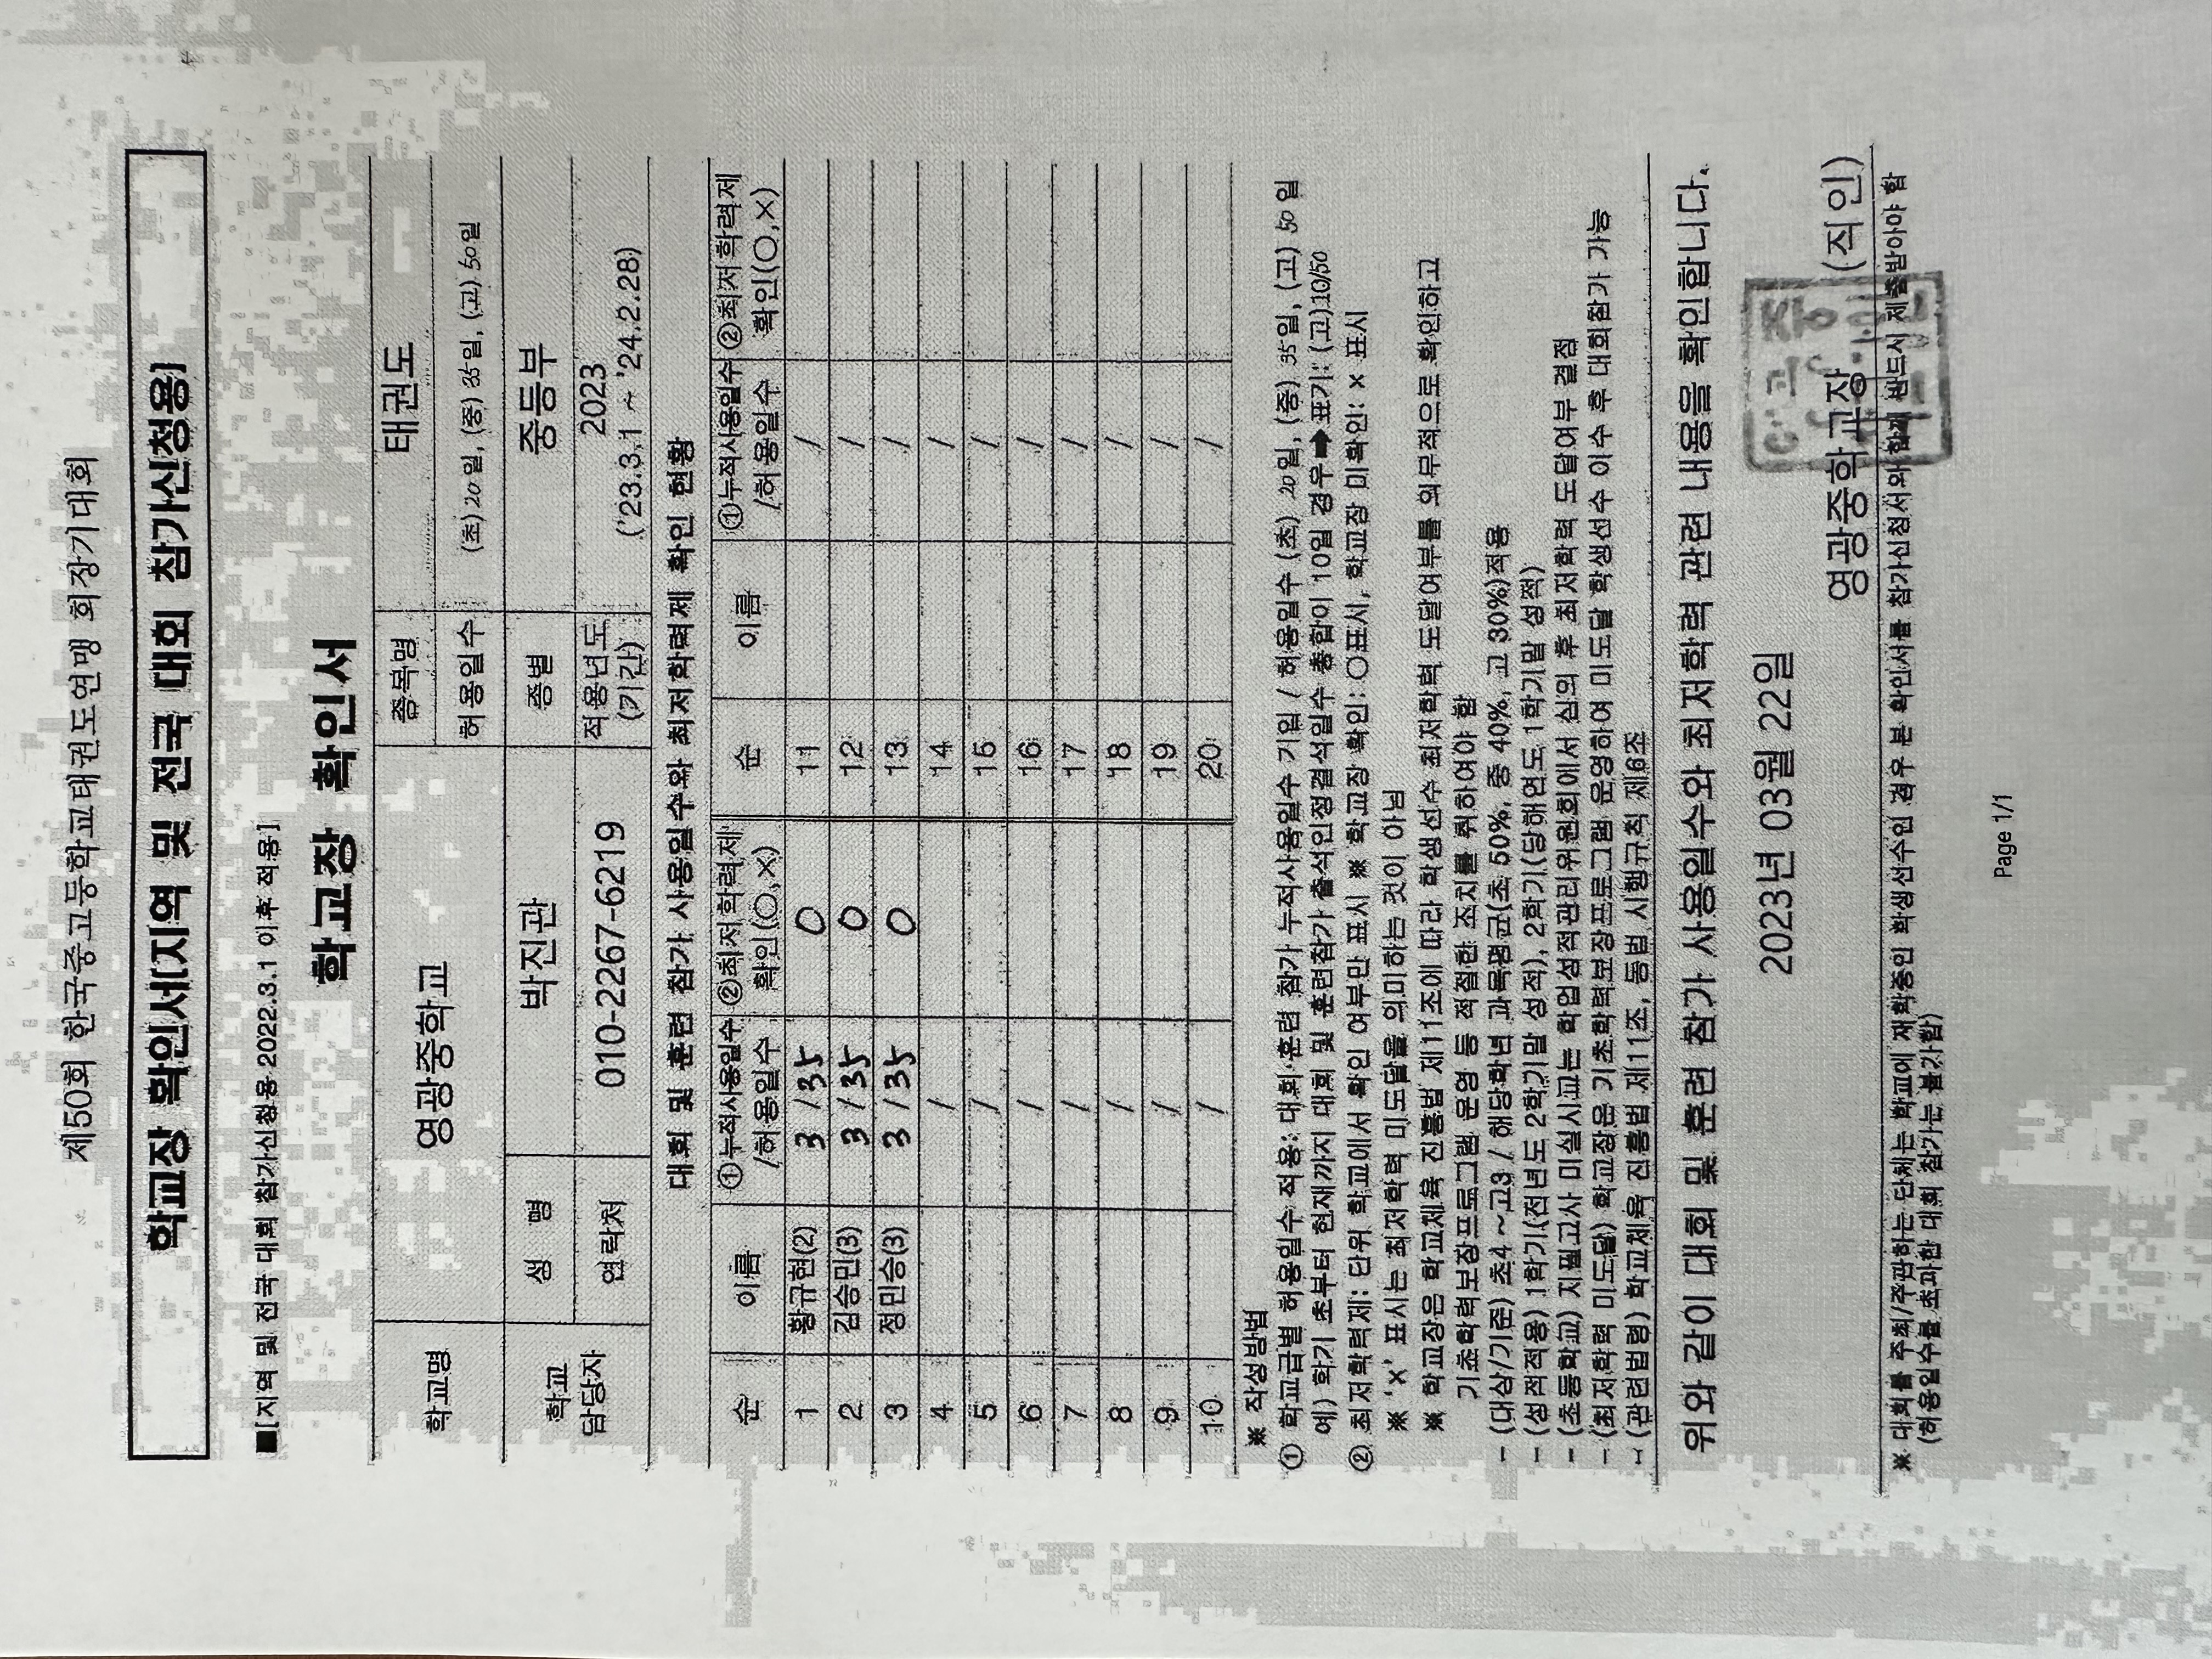 제50회 한국중고등학교태권도연맹 회장기대회
학교장 확인서[지역 및 전국 대회 참가신청용]
■[지역 및 전국 대회 참가신청용 2022.3.1 이후 적용]
학교장 확인서
학교명 영광중학교 종목명 태권도
허용일수 (초) 20일, (중) 35일, (고) 50일
학교 담당자 성 명 박진관 종별 중등부
연락처 010-2267-6219 적용년도 (기간) 2023 ('23.3.1 ~ '24.2.28)
대회 및 훈련 참가 사용일수와 최저학력제 확인 현황
순 이름 ①누적사용일수 /허용일수 ②최저학력제 확인(○,×) 순 이름 ①누적사용일수 /허용일수 ②최저학력제 확인(○,×)
1 황규현(2) 3 / 35 ○ 11 /
2 김승민(3) 3 / 35 ○ 12 /
3 정민승(3) 3 / 35 ○ 13 /
4 / 14 /
5 / 15 /
6 / 16 /
7 / 17 /
8 / 18 /
9 / 19 /
10 / 20 /
※ 작성방법
① 학교급별 허용일수 적용: 대회·훈련 참가 누적사용일수 기입 / 허용일수 (초) 20일, (중) 35일, (고) 50일
예) 학기 초부터 현재까지 대회 및 훈련참가 출석인정결석일수 총합이 10일 경우➡표기: (고)10/50
② 최저학력제: 단위 학교에서 확인 여부만 표시 ※ 학교장 확인: ○표시, 학교장 미확인: × 표시
※ 'x' 표시는 최저학력 미도달을 의미하는 것이 아님
※ 학교장은 학교체육 진흥법 제11조에 따라 학생선수 최저학력 도달여부를 의무적으로 확인하고
기초학력보장프로그램 운영 등 적절한 조치를 취하여야 함
- (대상/기준) 초4 ~ 고3 / 해당학년 과목평균(초 50%, 중 40%, 고 30%)적용
- (성적적용) 1학기(전년도 2학기말 성적), 2학기(당해연도 1학기말 성적)
- (초등학교) 지필고사 미실시교는 학업성적관리위원회에서 심의 후 최저학력 도달여부 결정
- (최저학력 미도달) 학교장은 기초학력보장프로그램 운영하여 미도달 학생선수 이수 후 대회참가 가능
- (관련법령) 학교체육 진흥법 제11조, 동법 시행규칙 제6조
위와 같이 대회 및 훈련 참가 사용일수와 최저학력 관련 내용을 확인합니다.
2023년 03월 22일
영광중학교장 (직인)
※ 대회를 주최/주관하는 단체는 학교에 재학중인 학생선수인 경우 본 확인서를 참가신청서와 함께 반드시 제출받아야 함
(허용일수를 초과한 대회 참가는 불가함)
Page 1/1